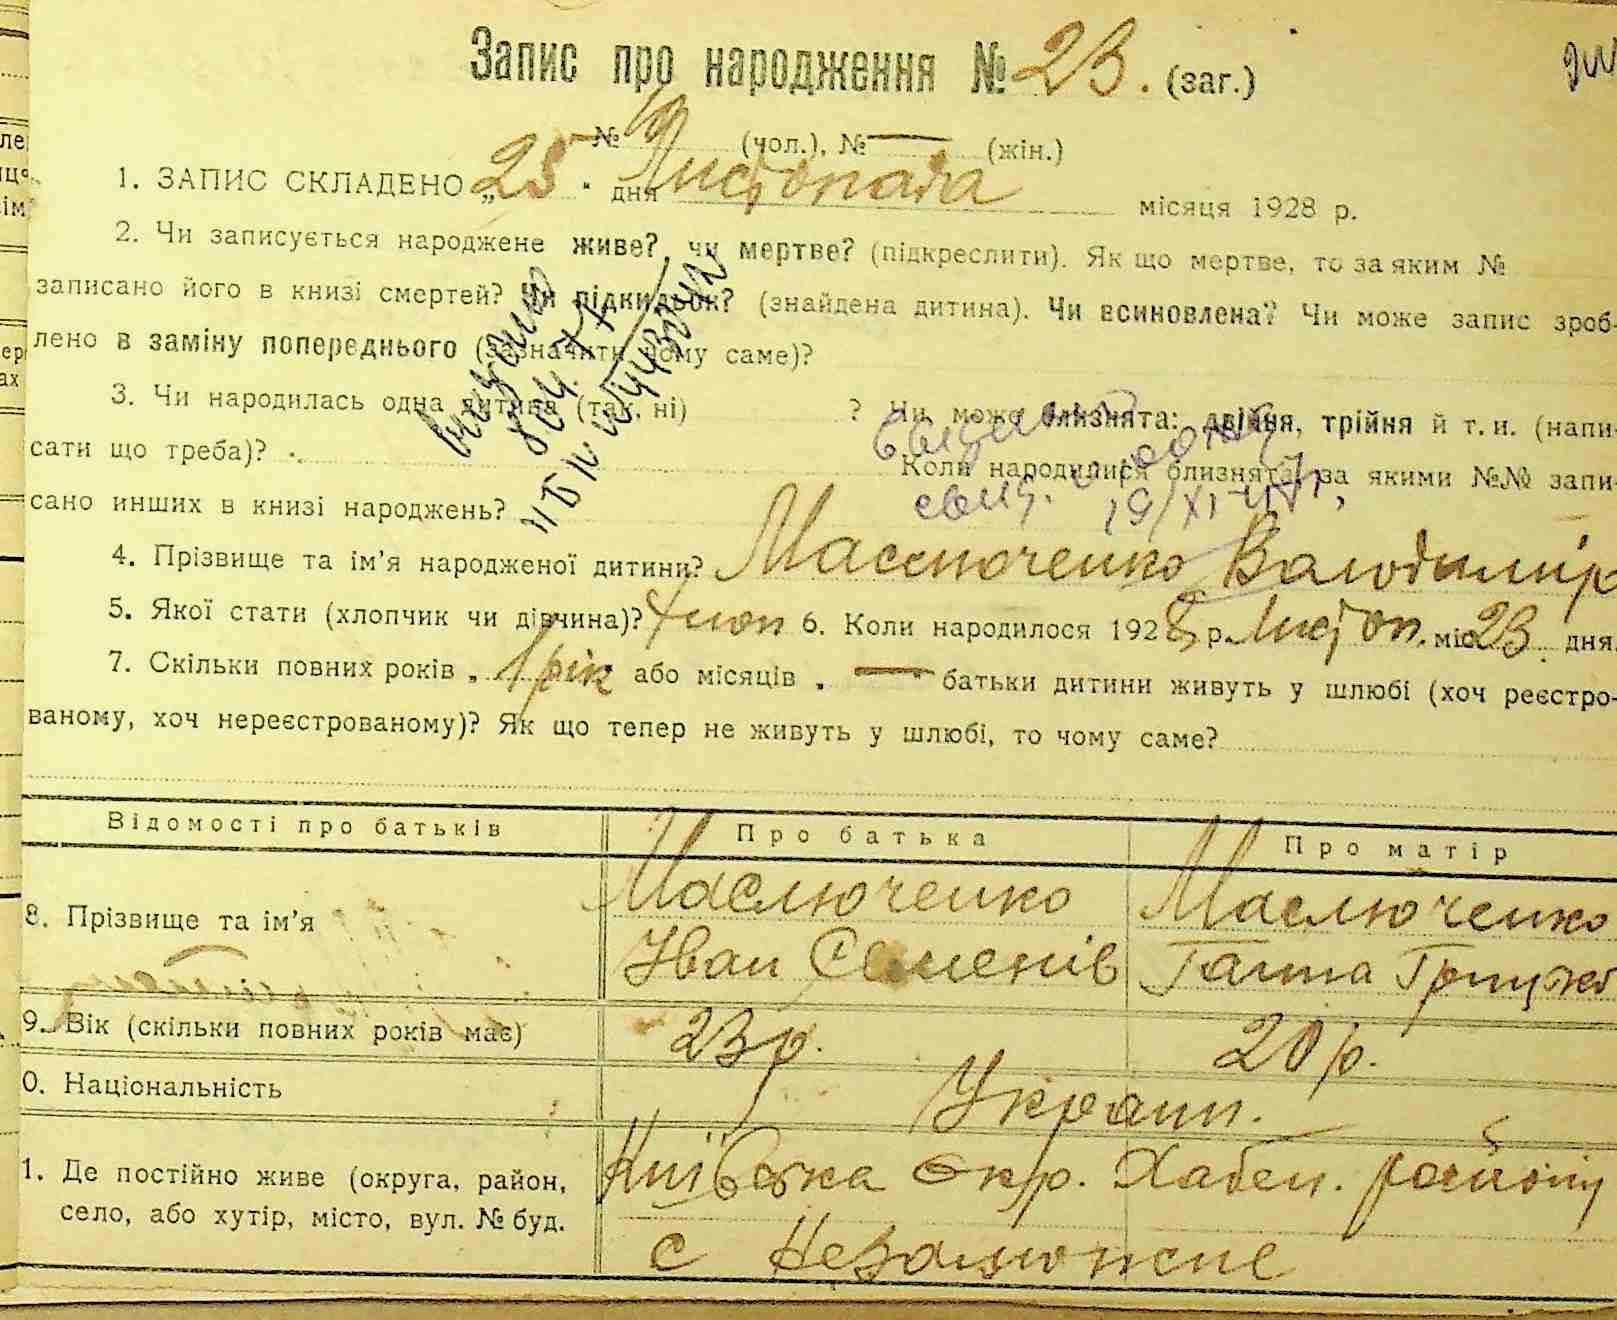 Запис про народження № 23. (заг.)
№ 19 (чол.), № — (жін.)
1. ЗАПИС СКЛАДЕНО „25" дня Листопада місяця 1928 р.
2. Чи записується народжене живе? чи мертве? (підкреслити). Як що мертве, то за яким №
записано його в книзі смертей? Чи підкидьок? (знайдена дитина). Чи всиновлена? Чи може запис зроб-
лено в заміну попереднього (зазначити чому саме)?
3. Чи народилась одна дитина (так, ні) ? Чи може близнята: двійня, трійня й т. и. (напи-
сати що треба)? Коли народилися близнята, за якими №№ запи-
сано инших в книзі народжень?
19/XI-47г.
4. Прізвище та ім'я народженої дитини? Маслюченко Володимір
5. Якої стати (хлопчик чи дівчина)? Хлоп 6. Коли народилося 1928 р. Листоп. міс 23 дня.
7. Скільки повних років „ 1 рік або місяців „ — батьки дитини живуть у шлюбі (хоч реєстро-
ваному, хоч нереєстрованому)? Як що тепер не живуть у шлюбі, то чому саме?
Відомості про батьків Про батька Про матір
8. Прізвище та ім'я Маслюченко Іван Семенів Маслюченко Ганна
9. Вік (скільки повних років має) 23 р. 20 р.
0. Національність Украин.
1. Де постійно живе (округа, район, Київська Окр. Хабен. району
село, або хутір, місто, вул. № буд. с Незаможне